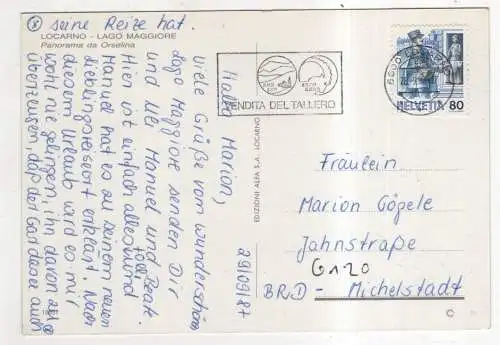 LOCARNO - LAGO MAGGIORE
Panorama da Orselina
Hallo Marion,
viele Grüße vom wunderschönen
Lago Maggiore senden Dir
und Uli Manuel und Beate.
Hier ist einfach alles toll und
Manuel hat es zu seinem neuen
Lieblingsreiseort erklärt. Nach
diesem Urlaub wird es mir
wohl nie gelingen, ihn davon zu
überzeugen, daß der Gardasee auch
⊗ seine Reize hat.
29/09/87
EDIZIONI ALFA S.A. LOCARNO
VENDITA DEL TALLERO
6600
HELVETIA 80
Fräulein
Marion Göpele
Jahnstraße
6120
BRD - Michelstadt
©